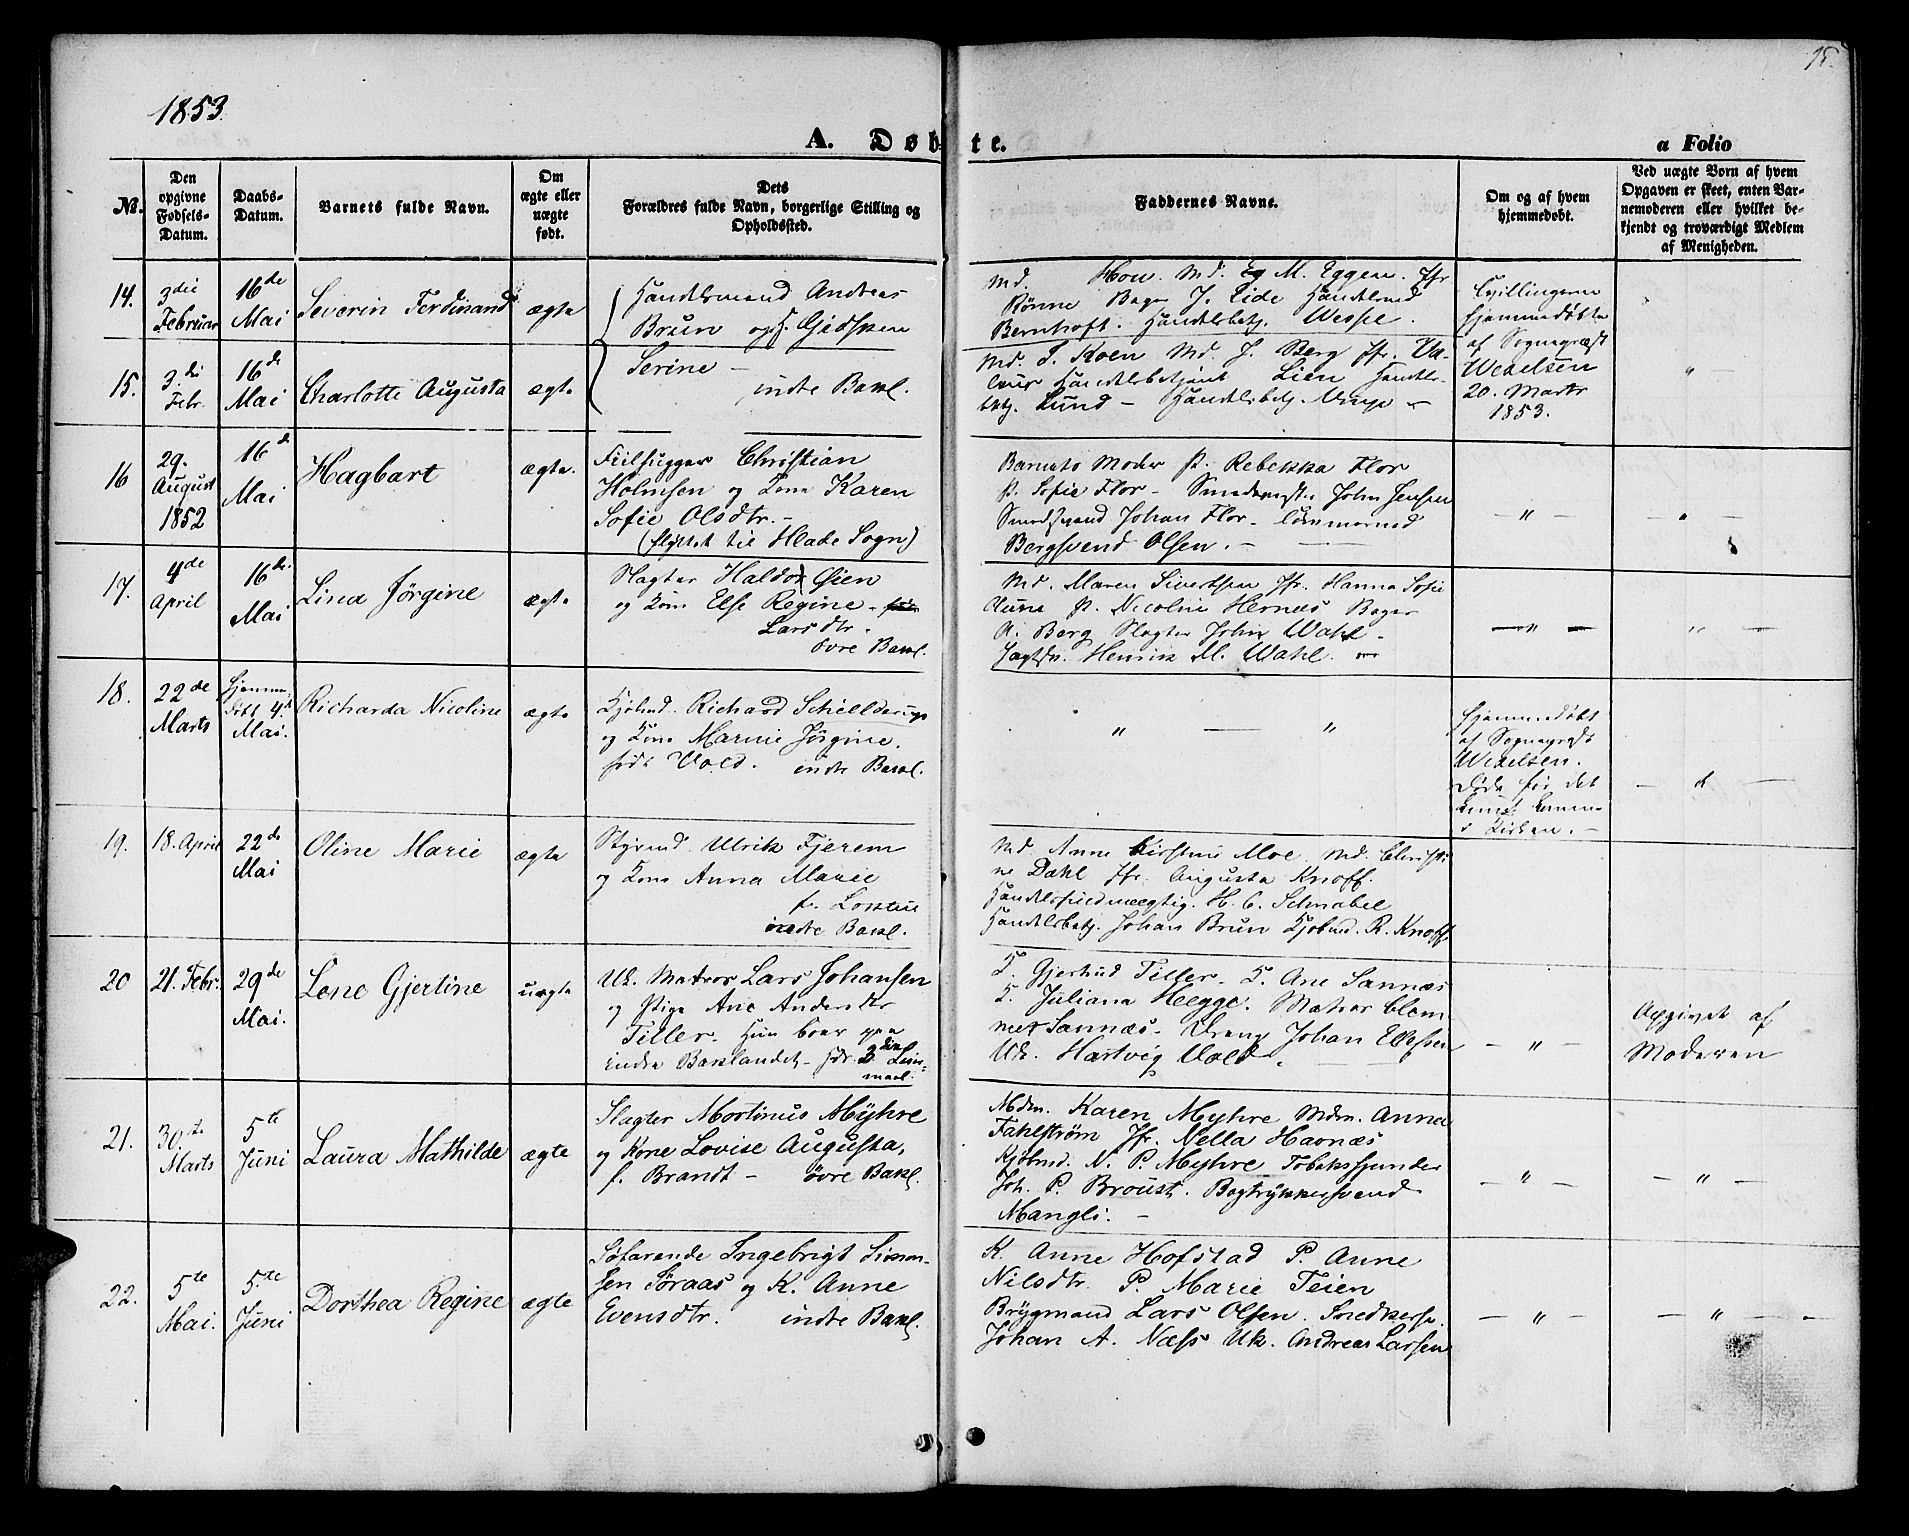 15.
1853.
A. Døbte.
a Folio
№.
Den opgivne Fødsels-Datum.
Daabs-Datum.
Barnets fulde Navn.
Om ægte eller uægte født.
Dets Forældres fulde Navn, borgerlige Stilling og Opholdssted.
Faddernes Navne.
Om og af hvem hjemmedøbt.
Ved uægte Børn af hvem Opgaven er skeet, enten Barnemoderen eller hvilket bekjendt og troværdigt Medlem af Menigheden.
14.
3die Februar
16de Mai
Severin Ferdinand
ægte
Handelsmand Andreas
Brun og H. Gidsken
Serine —
indre Bakl.
Md. Hou. Md. Eg M. Eggen. Jfr
Rønne Bager J. Eide Handelsmd
Bernhoft. Handelsbetj. Wessel.
Tvillingerne
hjemmedøbte
af Sognepræst
Wexelsen
20. Marts
1853.
"
15.
3.die Febr.
16de Mai
Charlotte Augusta
ægte
Md. S. Koen Md. J. Berg Jfr.
Handelsbetjent Lien Handels-
betj. Lund —
"
16
29. August 1852
16d Mai
Hagbart
ægte.
Feilhugger Christian
Holmsen og Kone Karen
Sofie Olsdtr. —
(flyttet til Hlade Sogn)
Barnets Moder P. Rebekka Flor
P. Sofie Flor — John Jensen
Smedsvend Johan Flor — Tømmermd
Bergsvend Olsen. —
— " —
— " —
17.
4de April
16de Mai
Lina Jørgine
ægte
Slagter Haldor Øien
og Kone Else Regine —
Larsdtr.
øvre Bakl.
Md. Maren Sivertsen Jfr. Hanna Sofie
Aune P. Nicoline Hernæs Bager
A. Berg Slagter John Wahl —
Henrik M. Wahl. —
— " —
" —
18.
22de Marts
hjemmedøbt 4d Mai.
Richarda Nicoline
ægte
Kjøbmd. Richard Schielderup
og Kone Marie Jørgine.
født Vold. indre Bakl.
" — "
hjemmedøbt
af Sognepræst
Wexelsen.
Døde før det
kunde komme
i Kirken. —
— " —
19.
18. April
22de Mai
Oline Marie
ægte
Styrmd Ulrik Fjerem
og Kone Anna Marie
f. Loktu
indre Bakl.
Md Anne Kirstine Moe. Md. Christi-
ne Dahl Jfr. Augusta Knoff.
Handelsfuldmægtig. H. C. Schnabel
Handelsbetj. Johan Brun Kjøbmd. R. Knoff.
20
21. Febr.
29de Mai.
Lone Gjertine
uægte
Uk. Matros Lars Johansen
og Pige Ane Andersdtr
Tiller. Hun boer paa
Indre Baklandet — Hdr. 2den Leier-
maal.
T. Gjertrud Tiller. T. Ane Sannæs
T. Juliana Hegge. Matros Clem
met Sannæs. Dreng Johan Ellefsen
Uk. Hartvig Vold.
— " —
Opgivet af
Moderen
21.
30.te Marts
5te Juni
Laura Mathilde
ægte
Slagter Mortinus Myhre
og Kone Lovise Augusta,
f. Brandt — øvre Bakl.
Mdm. Karen Myhre Mdm. Anna
Fahlstrøm Jfr. Nella Havnæs
Kjøbmd. N. P. Myhre Tobaksspinder
Joh. P. Broust. Bogtrykkersvend
Mangli. —
— " —
— " —
22.
5te Mai.
5te Juni
Dorthea Regine
ægte
Søfarende Ingebrigt Simon-
sen Søraas og K. Anne
Evensdtr. indre Bakl.
K. Anne Hofstad P. Anne
Nilsdtr. P. Marie Teien
Brygmand Lars Olsen. Snedkersv.
Johan A. Næss Uk. Andreas Larsen
— " —
— " —